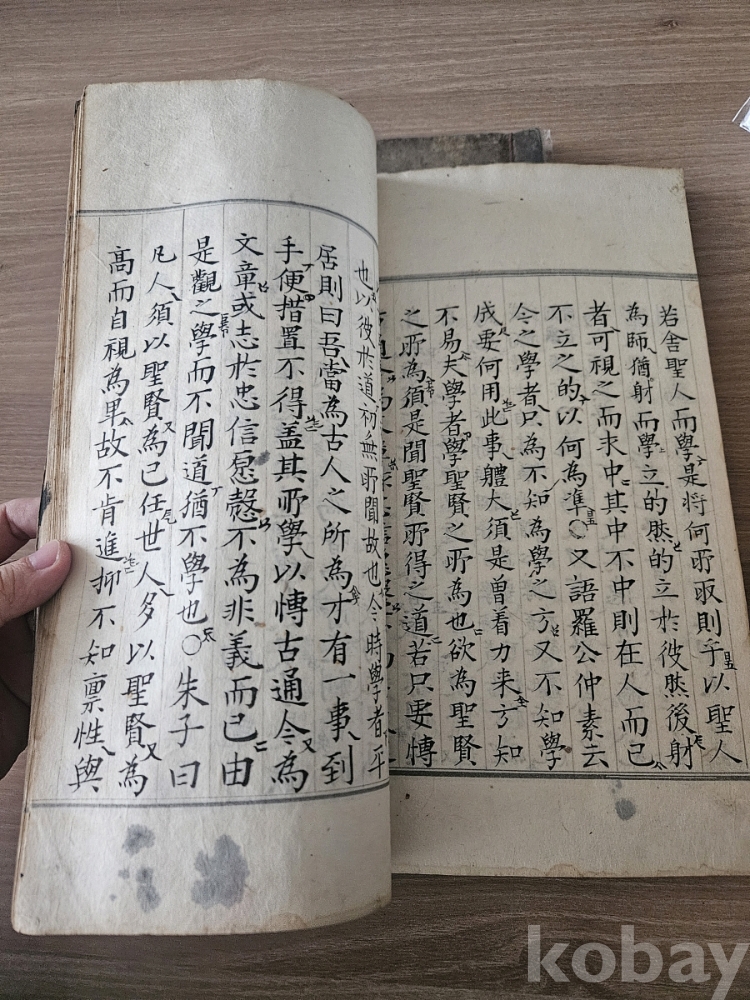 若舍聖人而學是將何所取則乎以聖人
為師猶射而學立的然的立於彼然後射
者可視之而求中其中不中則在人而已
不立之的以何為準○又語羅公仲素云
今之學者只為不知為學之方又不知學
成要何用此事體大須是曾着力來方知
不易夫學者學聖賢之所為也欲為聖賢
之所為須是聞聖賢所得之道若只要愽
也以彼於道初無所聞故也今時學者平
居則曰吾當為古人之所為才有一事到
手便措置不得盖其所學以愽古通今為
文章或志於忠信愿慤不為非義而已由
是觀之學而不聞道猶不學也○朱子曰
凡人須以聖賢為己任世人多以聖賢為
高而自視為卑故不肯進抑不知稟性與
kobay